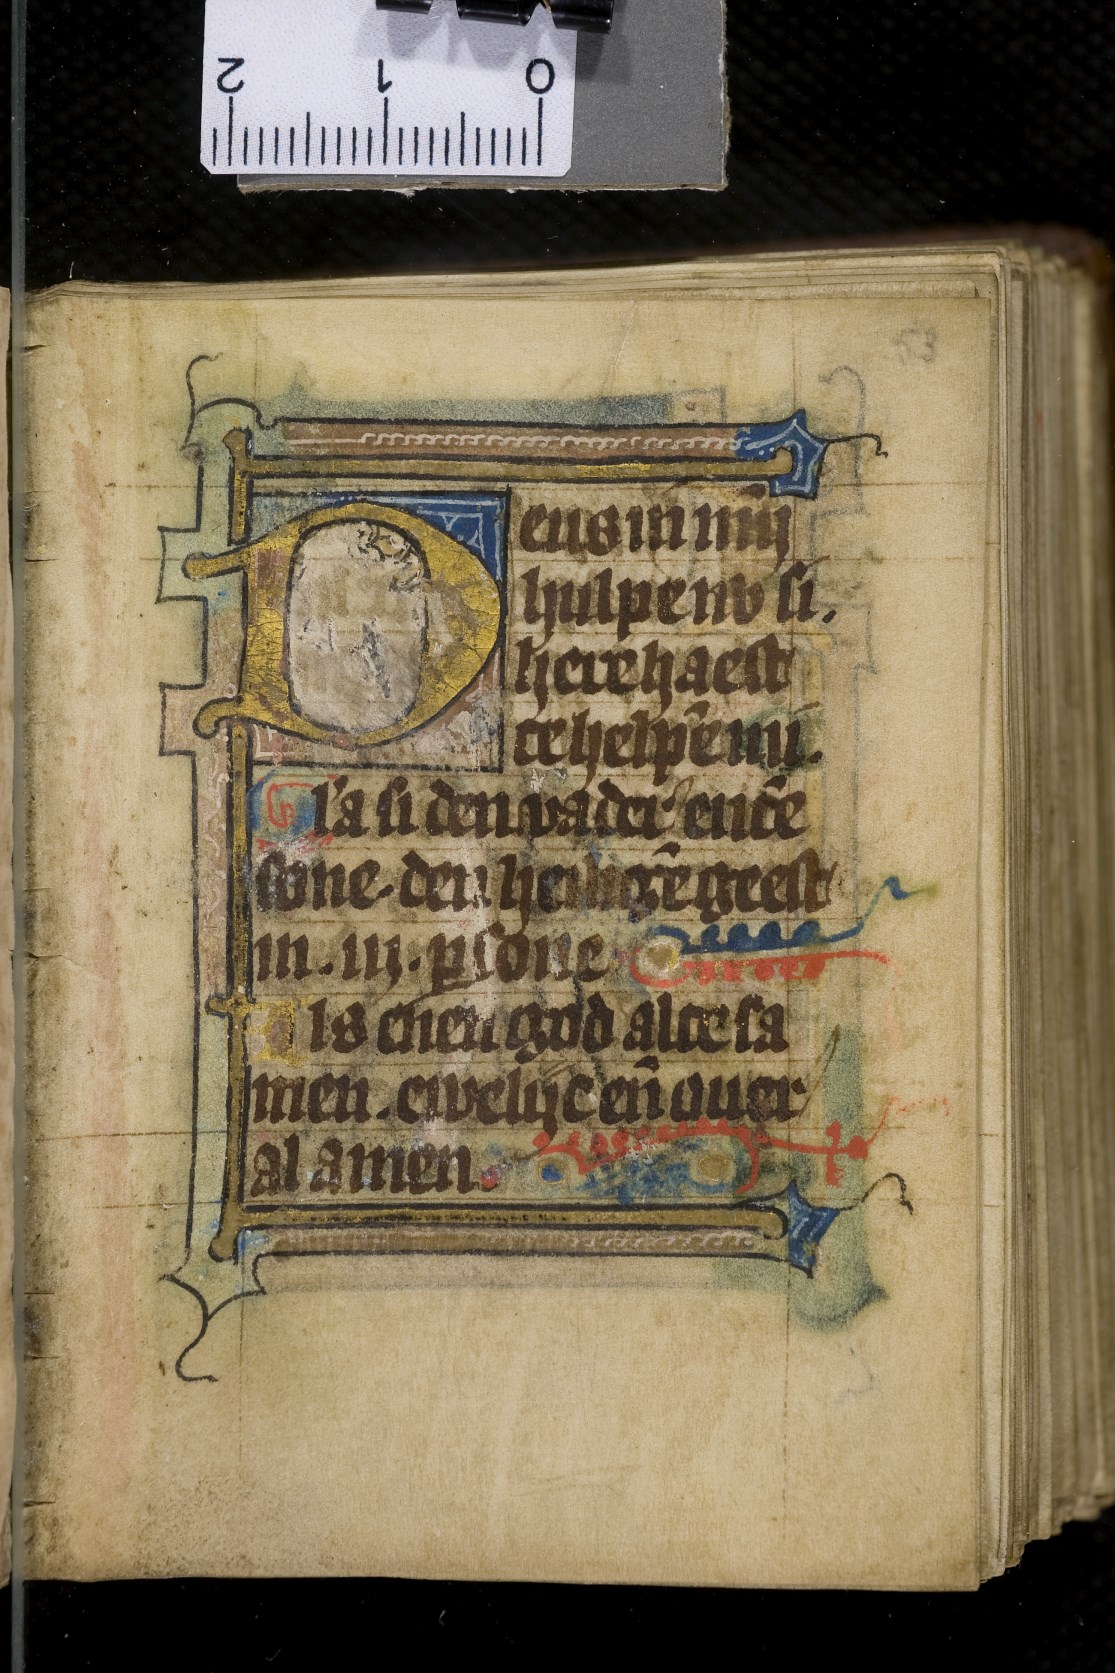 2 1 0
53
Deus in mijn
hulpe nv si.
here haest
te helpē mi.
Gl'a si den vader en̄ dē
sone. den heiligē geest
in .iij. psone
Als enen god alte sa
men. ewelijc en̄ ouer
al amen.